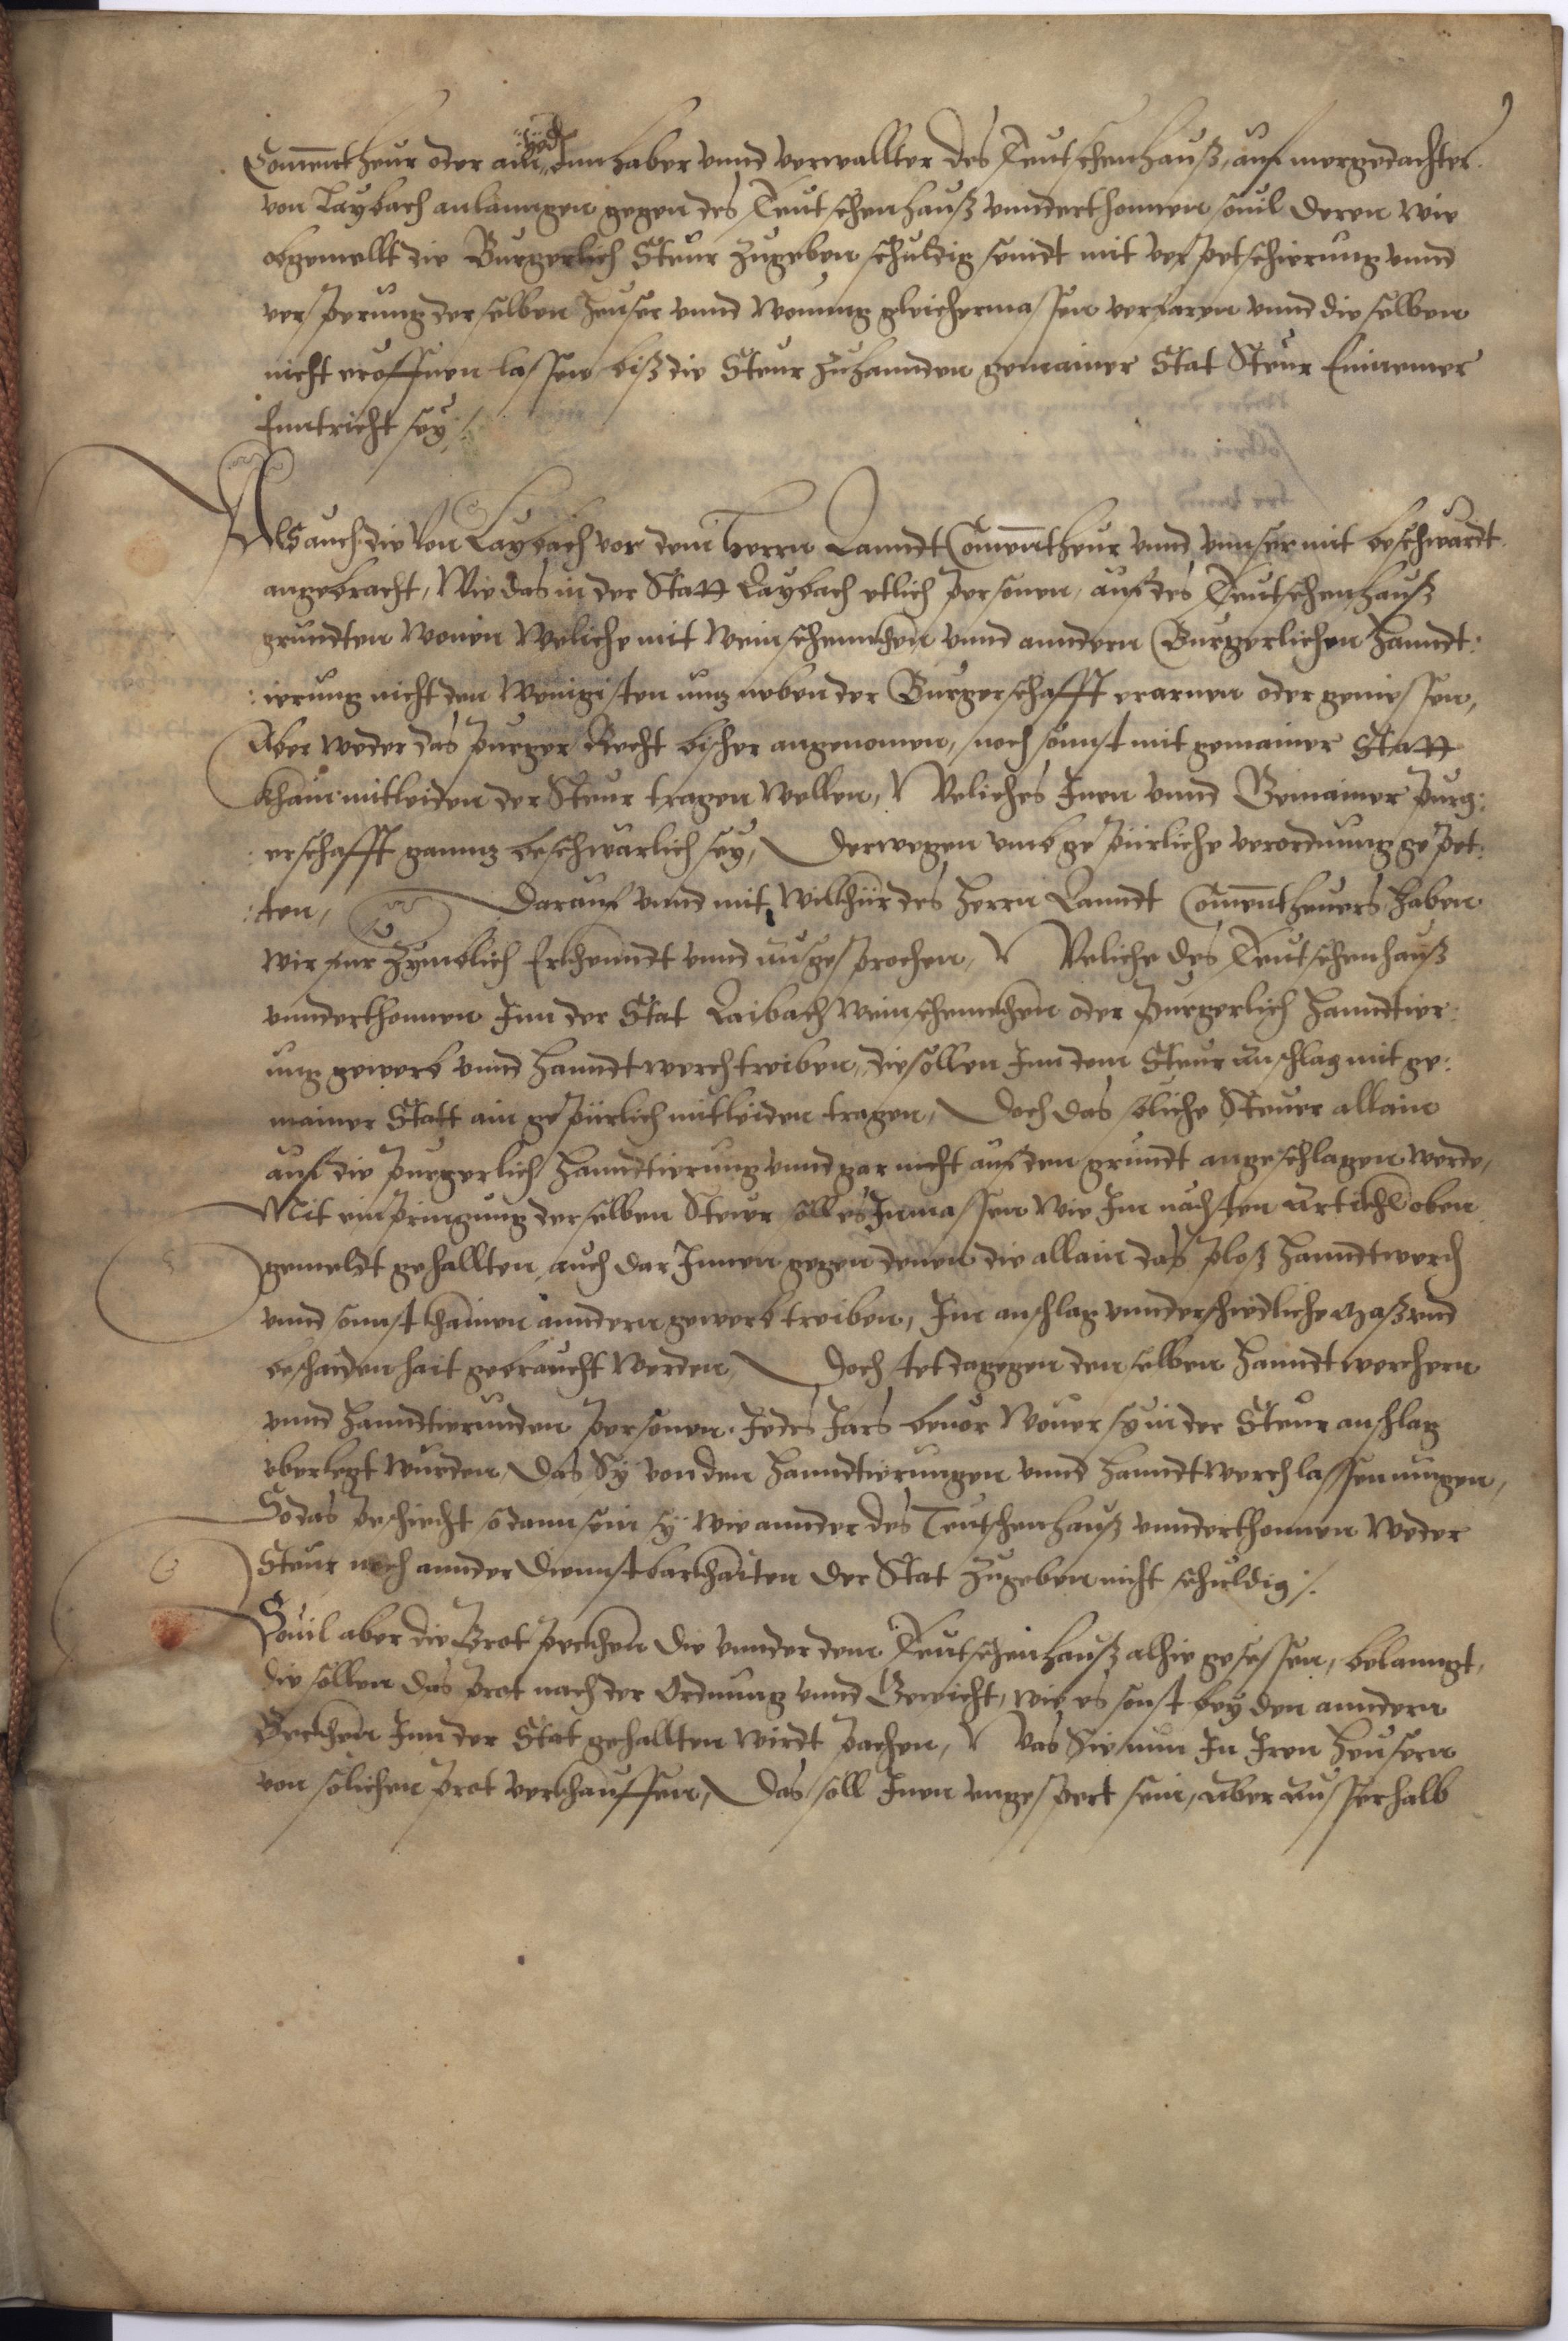 Comenntheur oder ain yeder Innhaber vnnd verwallter des Teutschenhauß, auf mergedachter
von Laybach anlanngen gegen des Teutschenhauß vnnderthonnen souil deren wie
obgemellt die Burgerlich Steur zugeben schuldig seindt mit verpetschierung vnnd
versperung derselben heuser vnnd wonung gleichermassen verfaren vnnd dieselben
nicht eröffnen lassen biß die Steur zuhannden gemainer Stat Steur Einnemer
Enntricht sey /
Als auch die von Laybach vor dem Herrn Lanndt Comenntheur vnnd vnnser mit beschwärdt
angebracht, Wie das in der Statt Laybach etlich personen, auf des Teutschenhauß
grundten wonen Weliche mit Weinschennckhen vnnd anndern Burgerlichen Hanndt:
:ierung nicht den wenigisten nuz neben der Burgerschafft erarnen oder geniessen,
Aber weder das purger Recht bisher angenomen, noch sonnst mit gemainer Statt
khain mitleiden der Steur tragen wellen, Weliches Inen vnnd Gemainer Purg:
:erschafft gannz beschwärlich sey, Derwegen vmb gepürliche verordnung gepet:
:ten, Darauf vnnd mit willkhür des Herrn Lanndt Comenntheuers haben
wir für zymblich Erkhenndt vnnd ausgesprochen, Weliche des Teutschenhauß
vnnderthonnen Inn der Stat Laibach weinschennckhen oder Purgerlich Hanndtier:
ung gewerb vnnd Hanndtwerch treiben, die sollen Inn dem Steur anschlag mit ge:
mainer Statt ain gepürlich mitleiden tragen, Doch das sölliche Steuer allain
auf die Purgerlich Hanndtierung vnnd gar nicht auf den grundt angeschlagen werde,
Mit einpringung derselben Steur soll es Inmassen wie Im nächsten Artickhl oben
gemeldt gehallten, auch dar Innen gegen denen die allain das ploß Hanndtwerch
vnnd sonnst khainen anndern gewerb treiben, Im anschlag vnnderschidliche maß vnd
beschaidenhait gebraucht werden, Doch stet dagegen denselben Hanndtwerchern
vnnd Hanndtierunden personen Jedes Jars beuor wouer sy in der Steur anschlag
vberlegt wurden, Das Sy von den Hanndtierungen vnnd Hanndtwerch lassen mugen,
So das beschiecht so dann sein sy wie annder des Teutschenhauß vnnderthonnen weder
Steur noch annder Diennstbarkhaiten der Stat zugeben nicht schuldig /.
Souil aber die Brot peckhen die vnnder dem Teutschenhauß alhie gesessen, belanngt,
die sollen das Prot nach der Ordnung vnnd Gewicht, wie es sonst bey den anndern
Beckhen Inn der Stat gehallten wirdt pachen, Was Sie nun In Iren heusern
von solichen Prot verkhauffen, Das soll Inen vngespert sein, aber ausserhalb